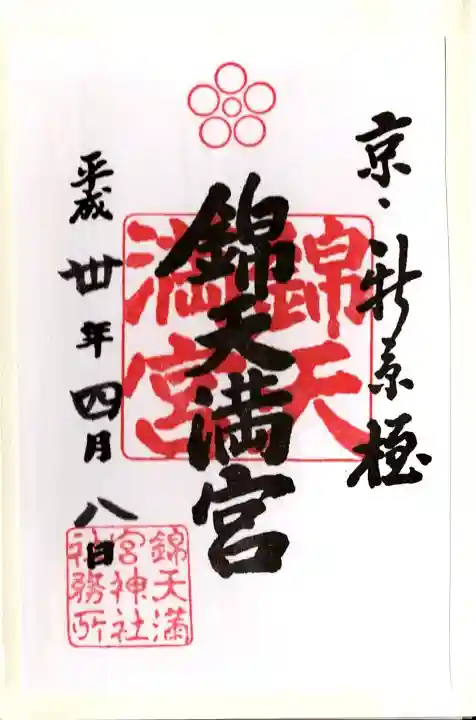 京、新京極
錦天満宮
錦天
満宮
平成卅年四月八日
錦天満
宮神社
社務所